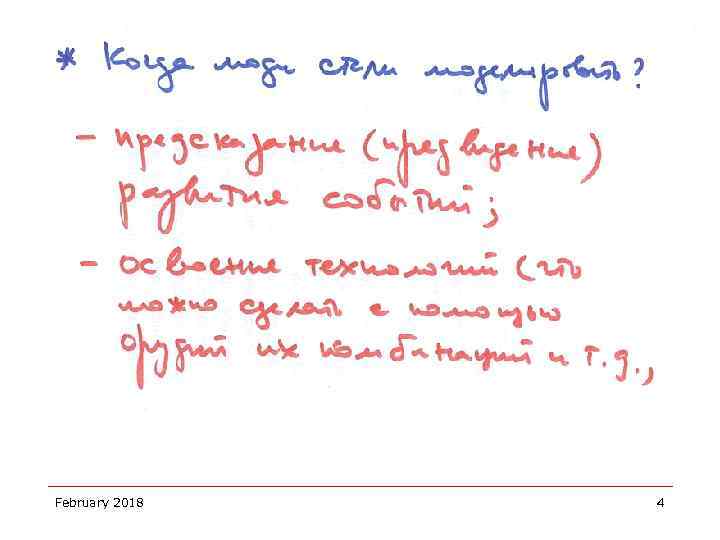 * Когда люди стали моделировать?
- предсказание (предвидение)
развития событий;
- освоение технологий (что
можно сделать с помощью
орудий их комбинаций и т.д.,
February 2018
4